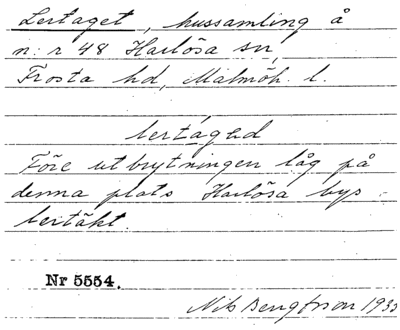 Lertaget, hussamling å
n:r 48 Harlösa sn,
Frosta hd, Malmöh. l.
lertáged
Före utbrytningen låg på
denna plats Harlösa bys
lertäkt.
Nr 5554.
Nils Bengtsson 1933